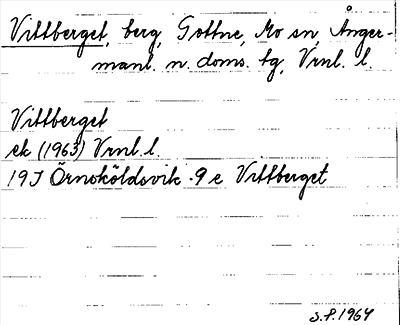 Vittberget, berg, Gottne, Mo sn Ånger-
manl. n. doms. tg, Vrnl. l.
Vittberget
ek (1963) Vrnl. l.
19J Örnsköldsvik -9e Vittberget
S.P. 1964